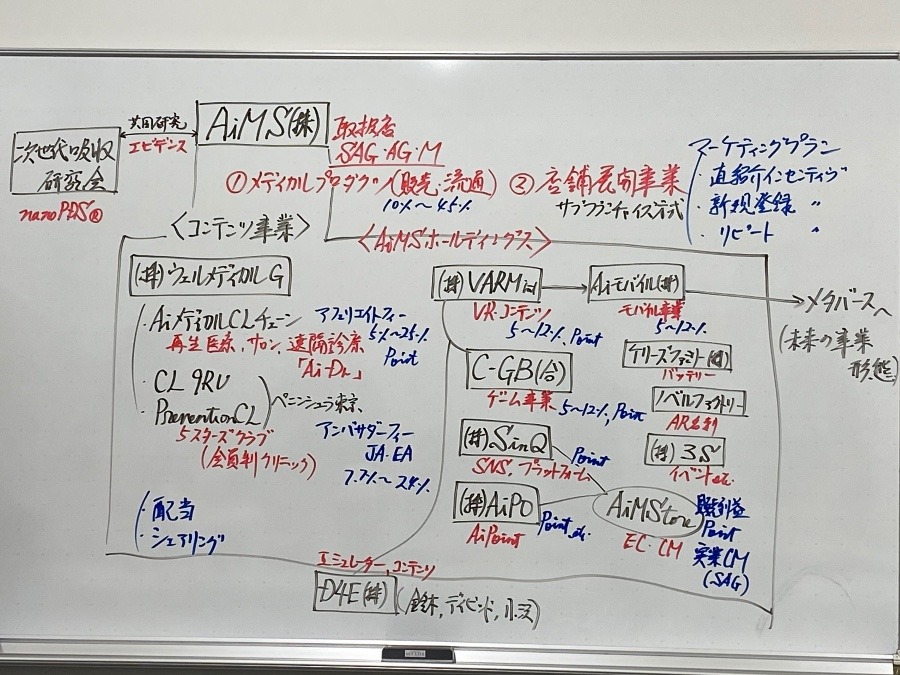 共同研究
AiMS(株)
次世代吸収
研究会
エビデンス
nanoPDS®
取扱店
SAG・AG・M
①メディカルプロダクツ(販売・流通)
10%〜45%
②店舗展開事業
サブフランチャイズ方式
マーケティングプラン
・直紹介インセンティヴ
・新規登録 〃
・リピート 〃
〈コンテンツ事業〉
〈AiMSホールディングス〉
(株)ウェルメディカルG
・AiメディカルCLチェーン
アフェリエイトフィー
5%〜25%
Point
再生医療,サロン,遠隔診療
「Ai-Dr」
・CL 9RU
PreventionCL
ペニンシュラ東京
5スターズクラブ
(会員制クリニック)
アンバサダーフィー
JA・EA
7.7%〜24%
・配当
・シェアリング
(株)VARM
VR・コンテンツ
5〜12% Point
Aiモバイル(株)
モバイル事業
5〜12%
メタバースへ
(未来の事業
形態)
C-GB(合)
ゲーム事業
5〜12%, Point
ケリーズファミリー
バッテリー
ノベルファクトリー
AR名刺
(株)SinQ
SNS,プラットフォーム
Point
(株)3S
イベントetc.
(株)AiPO
AiPoint
Point, etc.
AiMStore
EC・CM
販売利益
Point
実業CM
(SAG)
エミュレーター,コンテンツ
D4E(株)
(鈴木,デイビッド,小沢)